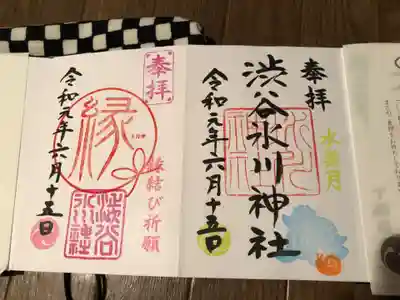 奉拝
渋谷氷川神社
水無月
令和元年六月十五日
奉拝
縁
縁結び祈願
渋谷氷川神社
令和元年六月十五日